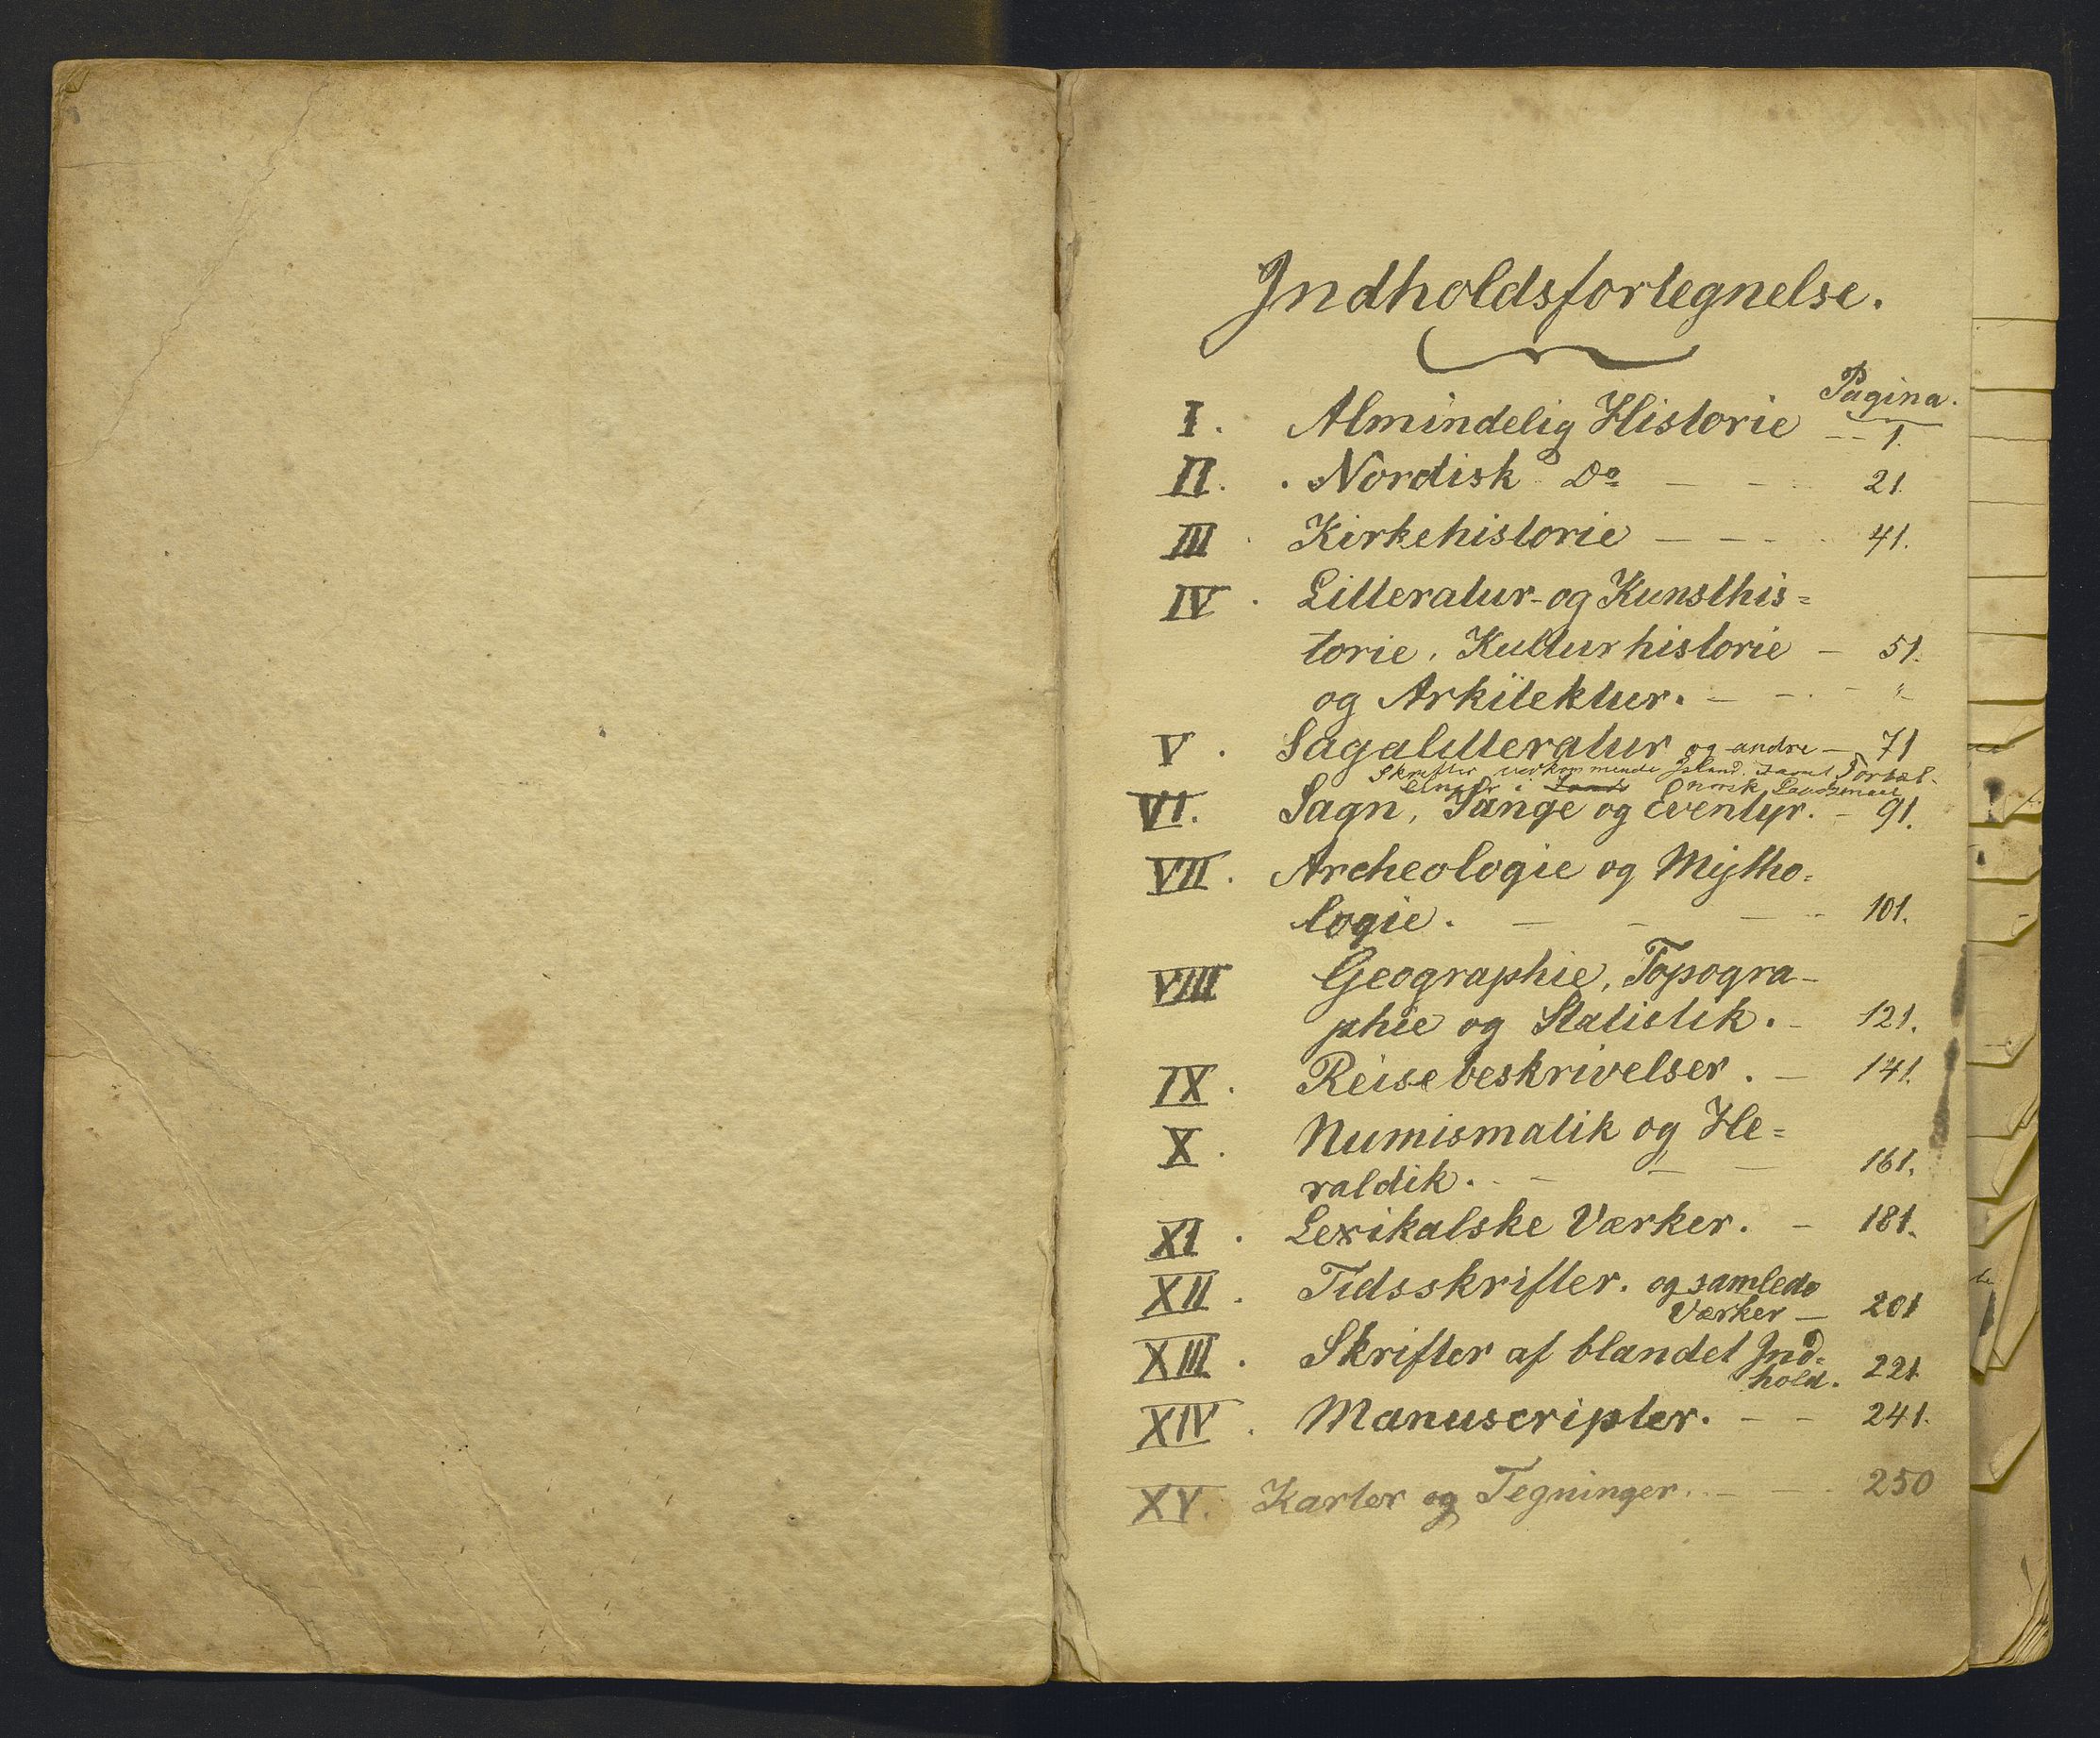 Indholdsfortegnelse.
Pagina.
I. Almindelig Historie -- 1.
II. Nordisk Do — - 21.
III Kirkehistorie — - - 41.
IV. Litteratur- og Kunsthis=
torie, Kulturhistorie — 51.
og Arkitektur. — - - "
V. Sagalitteratur og andre — 71
Skrifter vedkommende Island. Samt Fortæl-
linger i norsk Landsmaal
VI. Sagn, Sange og Eventyr. - 91.
VII. Archeologie og Mytho=
logie. — - — 101.
VIII Geographie, Topogra-
phie og Statistik. - 121.
IX. Reisebeskrivelser. — 141.
X. Numismatik og He=
raldik. - — — 161.
XI. Lexikalske Værker. - 181.
XII. Tidsskrifter. og samlede
Værker — 201
XIII. Skrifter af blandet Ind=
hold. 221
XIV. Manuscripter. - - 241.
XV. Karter og Tegninger. - - 250